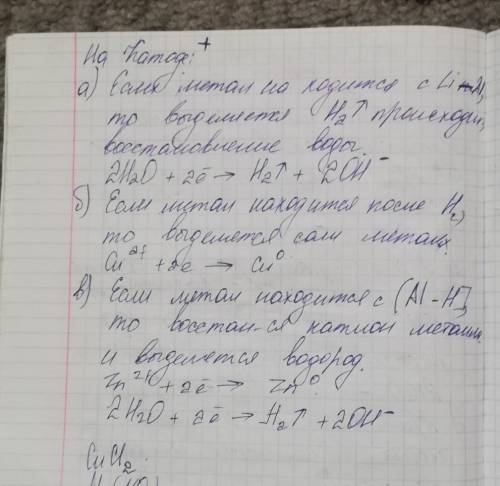 На Катоде:+
а) Если метал на ходится с Li-Al,
то выделяется H₂↑ происходит
восстановление воды.
2H₂O + 2ē → H₂↑ + 2OH⁻
б) Если метал находится после H₂,
то выделяется сам металл.
Cu²⁺ + 2ē → Cu⁰
в) Если метал находится с (Al - H),
то восстан-ся катион металл
и выделяется водород.
Zn²⁺ + 2ē → Zn⁰
2H₂O + 2ē → H₂↑ + 2OH⁻
CuCl₂